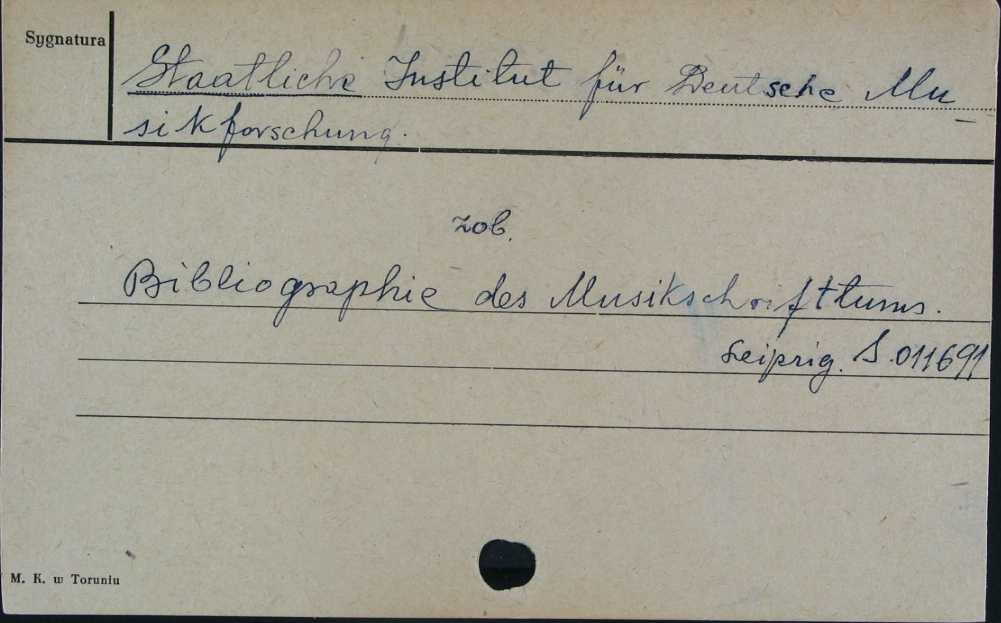 Sygnatura
Staatliche Institut für Deutsche Mu
sikforschung.
zob.
Bibliographie des Musikschrifttums.
Leipzig. S.011691
M. K. w Toruniu